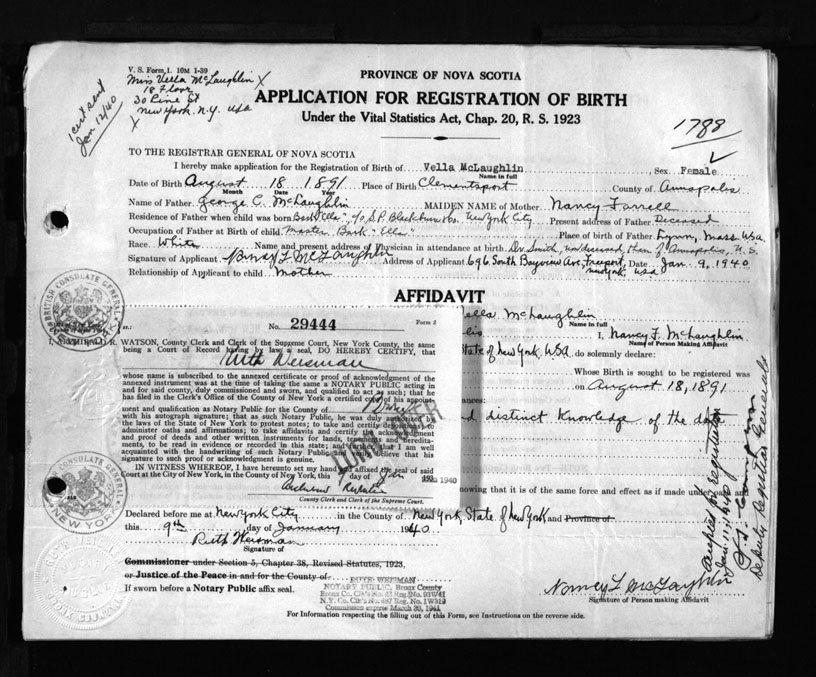 V. S. Form, 1. 10M 1-39
Miss Vella McLaughlin X
18 Floor
30 Pine St
New York. N.Y. USA
X
1 cert sent
Jan 12/40
PROVINCE OF NOVA SCOTIA
APPLICATION FOR REGISTRATION OF BIRTH
Under the Vital Statistics Act, Chap. 20, R. S. 1923
1788
TO THE REGISTRAR GENERAL OF NOVA SCOTIA
I hereby make application for the Registration of Birth of Vella McLaughlin Sex Female
Name in full
Date of Birth August 18 1891 Place of Birth Clementsport County of Annapolis
Month Date Year
Name of Father George C. McLaughlin MAIDEN NAME of Mother Nancy Farrell
Residence of Father when child was born Bark "Ella", c/o S.P. Blackburn &co. New York City Present address of Father Deceased
Occupation of Father at Birth of child Master Bark "Ella" Place of birth of Father Lynn, Mass. USA
Race White Name and present address of Physician in attendance at birth Dr Smith, now deceased, then of Annapolis, N.S.
Signature of Applicant Nancy F McLaughlin Address of Applicant 696 South Bayview Ave, Freeport, Date Jan 9, 1940
New York, USA
Relationship of Applicant to child Mother
AFFIDAVIT
Vella McLaughlin
Name in full
I, Nancy F. McLaughlin
Name of Person Making Affidavit
State of New York, USA do solemnly declare:
Whose Birth is sought to be registered was
on August 18, 1891
and distinct knowledge of the data
knowing that it is of the same force and effect as if made under oath and
ss.: No. 29444 Form 2
I, ARCHIBALD R. WATSON, County Clerk and Clerk of the Supreme Court, New York County, the same
being a Court of Record having by law a seal, DO HEREBY CERTIFY, that
Ruth Weisman
whose name is subscribed to the annexed certificate or proof of acknowledgment of the
annexed instrument was at the time of taking the same a NOTARY PUBLIC acting in
and for said county, duly commissioned and sworn, and qualified to act as such; that he
has filed in the Clerk's Office of the County of New York a certified copy of his appoint-
ment and qualification as Notary Public for the County of Bronx
with his autograph signature; that as such Notary Public, he was duly authorized by
the laws of the State of New York to protest notes; to take and certify depositions; to
administer oaths and affirmations; to take affidavits and certify the acknowledgment
and proof of deeds and other written instruments for lands, tenements and heredita-
ments, to be read in evidence or recorded in this state; and further, that I am well
acquainted with the handwriting of such Notary Public, and verily believe that his
signature to such proof or acknowledgment is genuine.
IN WITNESS WHEREOF, I have hereunto set my hand and affixed the seal of said
Court at the City of New York, in the County of New York, this 9 day of Jan 1940
County Clerk and Clerk of the Supreme Court.
BRITISH CONSULATE GENERAL
CONSULATE GENERAL
NEW YORK
Declared before me at New York City in the County of New York, State of New York and Province of
this 9th day of January 1940
Ruth Weisman
Signature of
Commissioner under Section 5, Chapter 38, Revised Statutes, 1923,
or Justice of the Peace in and for the County of
If sworn before a Notary Public affix seal.
RUTH WEISMAN
NOTARY PUBLIC, Bronx County
Commission expires March 30, 1941
Nancy F McLaughlin
Signature of Person making Affidavit
For Information respecting the filling out of this Form, see Instructions on the reverse side.
Deputy Registrar General